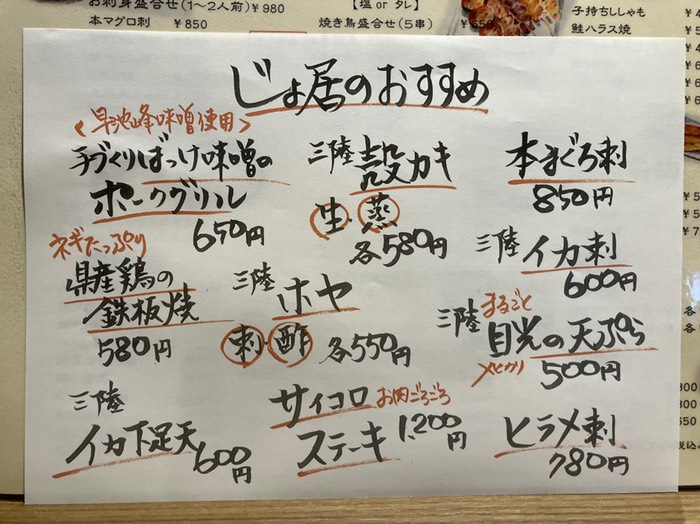 お刺身盛合せ(1〜2人前)¥980
本マグロ刺 ¥850
【塩 or タレ】
焼き鳥盛合せ(5串) ¥650
子持ちししゃも
鮭ハラス焼
じょ居のおすすめ
<早池峰味噌使用>
手づくりばっけ味噌の
ポークグリル
650円
三陸 殻カキ
生・蒸
各580円
本まぐろ刺
850円
ネギたっぷり
県産鶏の
鉄板焼
580円
三陸 ホヤ
刺・酢 各550円
三陸 イカ刺
600円
三陸 まるごと
目光の天ぷら
メヒカリ 500円
三陸
イカ下足天 600円
サイコロ お肉ごろごろ
ステーキ 1,200円
ヒラメ刺
780円